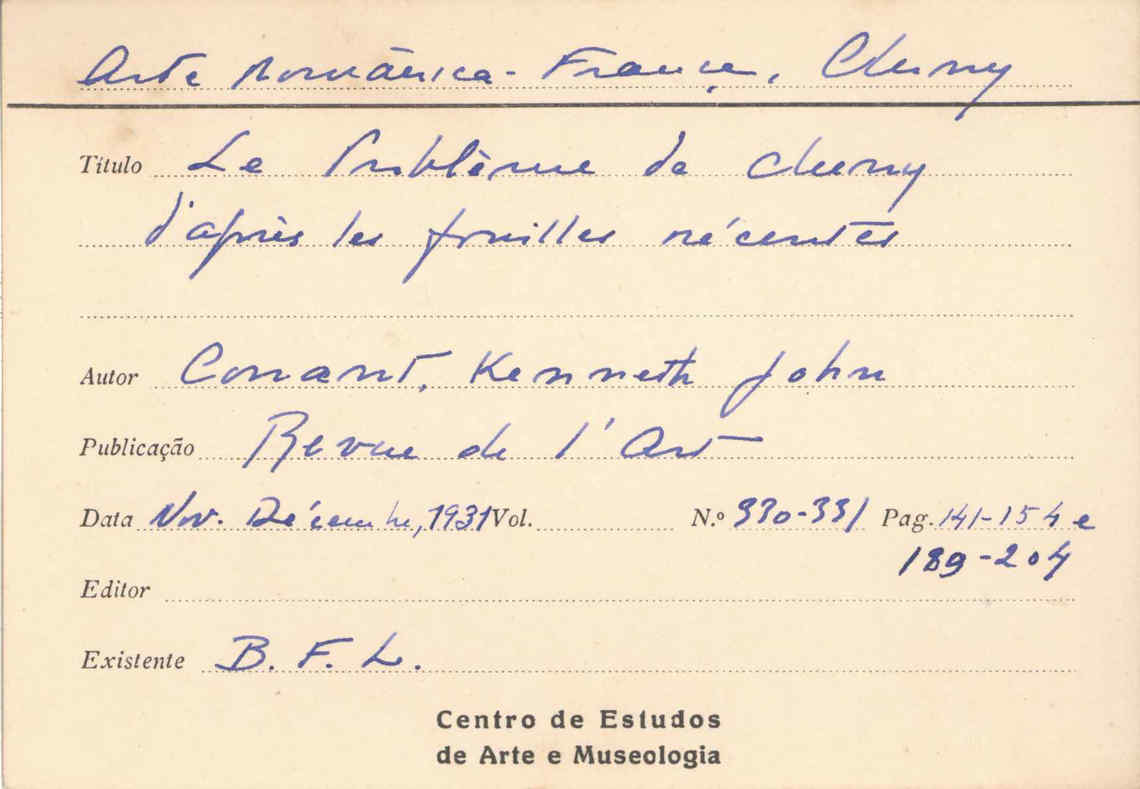 Arte Românica - França, Cluny
Título Le Problème de Cluny
d'après les fouilles récentes
Autor Conant, Kenneth John
Publicação Revue de l'Art
Data Nov. Décembre, 1931 Vol. N.º 330-331 Pag. 141-154 e
189-204
Editor
Existente B. F. L.
Centro de Estudos
de Arte e Museologia